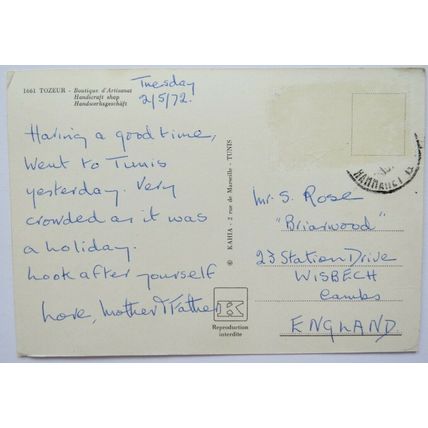 1661 TOZEUR - Boutique d'Artisanat
Handicraft shop
Handwerksgeschäft
Tuesday
2/5/72.
Having a good time,
Went to Tunis
yesterday. Very
crowded as it was
a holiday.
Look after yourself
Love, Mother & Father
© KAHIA - 2 rue de Marseille - TUNIS
Reproduction
interdite
HAMMAMET
Mr. S. Rose
"Briarwood"
23 Station Drive
WISBECH
Cambs
ENGLAND.